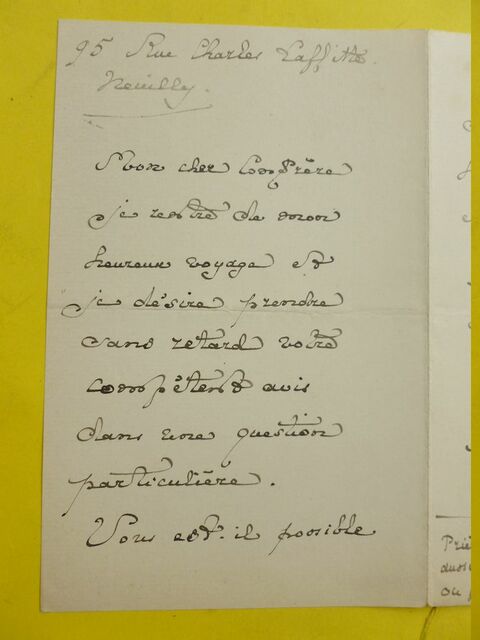 95 Rue Charles Laffitte.
Neuilly.
Mon cher Confrère
je rentre de mon
heureux voyage et
je désire prendre
sans retard votre
compétent avis
dans une question
particulière.
Vous est-il possible
Priè
ou